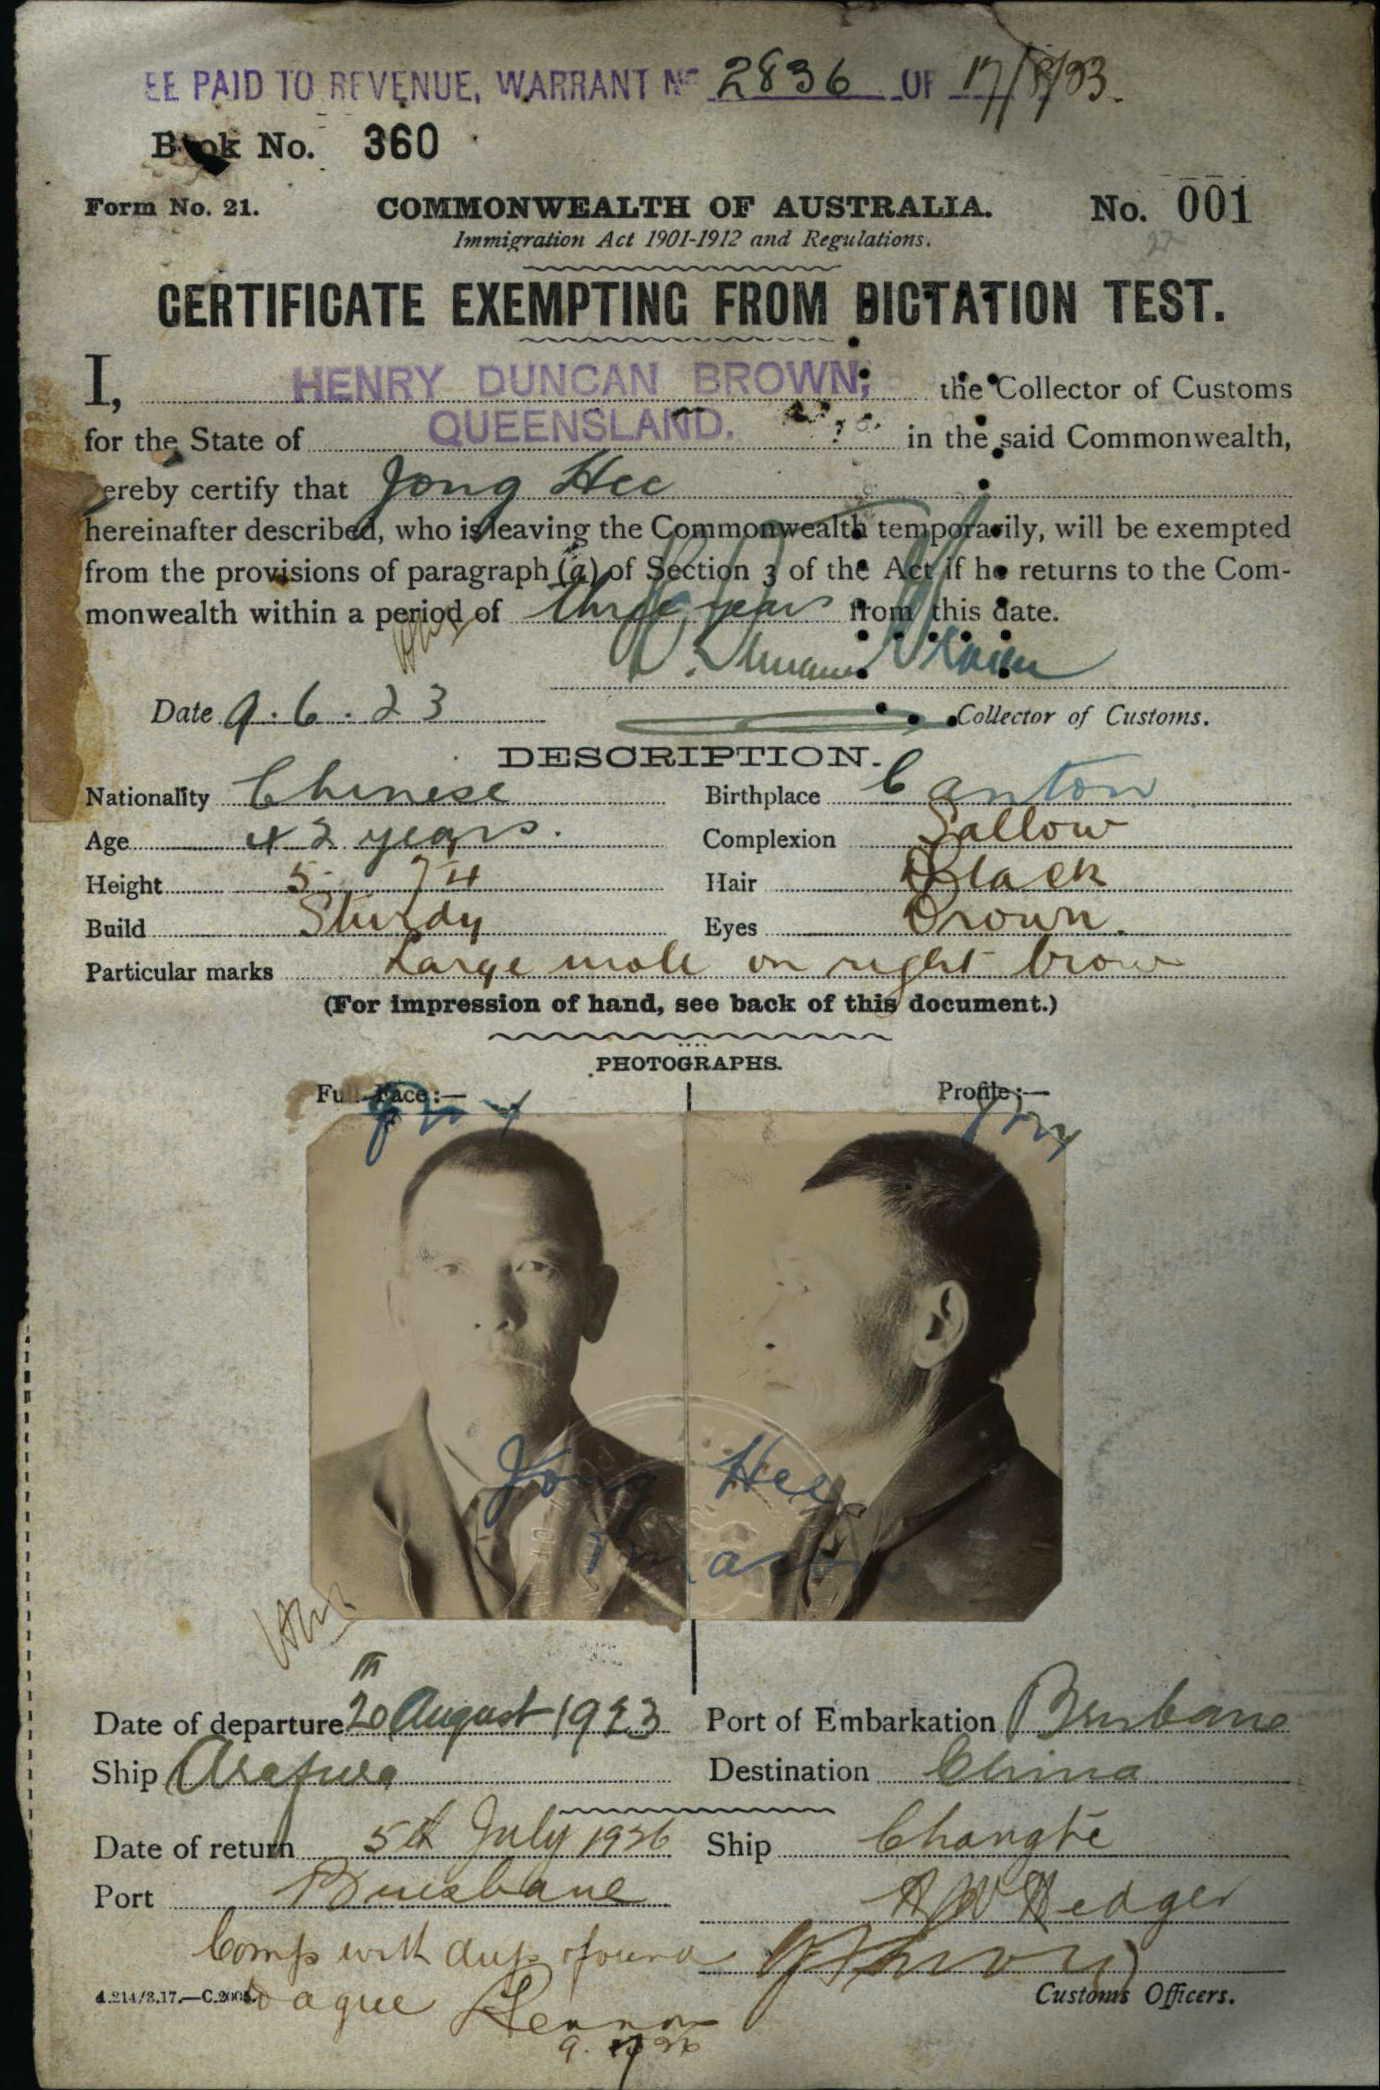 EE PAID TO REVENUE, WARRANT No 2836 OF 17/8/23.
Book No. 360
Form No. 21. COMMONWEALTH OF AUSTRALIA. No. 001
Immigration Act 1901-1912 and Regulations.
CERTIFICATE EXEMPTING FROM DICTATION TEST.
I, HENRY DUNCAN BROWN, the Collector of Customs
for the State of QUEENSLAND. in the said Commonwealth,
hereby certify that Jong Hee
hereinafter described, who is leaving the Commonwealth temporarily, will be exempted
from the provisions of paragraph (a) of Section 3 of the Act if he returns to the Com-
monwealth within a period of three years from this date.
Date 9.6.23 Collector of Customs.
DESCRIPTION.
Nationality Chinese Birthplace Canton
Age 42 years. Complexion Sallow
Height 5 Hair Black
Build Sturdy Eyes Brown.
Particular marks Large mole on right brow
(For impression of hand, see back of this document.)
PHOTOGRAPHS.
Full Face:— Profile:—
Jong Hee
Date of departure 20th August 1923 Port of Embarkation Brisbane
Ship Arafura Destination China
Date of return 5th July 1926 Ship Changte
Port Brisbane A W Hedger
Comp with dup & found
to agree
Customs Officers.